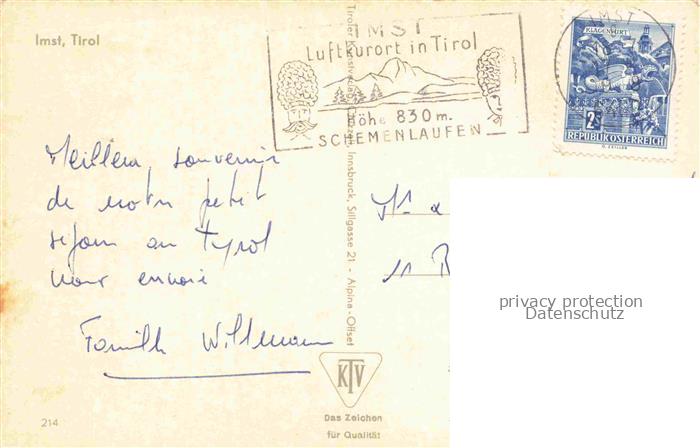 Imst, Tirol
IMST
Luftkurort in Tirol
Höhe 830 m.
SCHEMENLAUFEN
IMST
KLAGENFURT
2S
REPUBLIK ÖSTERREICH
Meilleur souvenir
de notre petit
séjour au Tyrol
vous envoie
Famille Willmann
Innsbruck, Sillgasse 21 - Alpina-Offset
11
privacy protection
Datenschutz
KTV
Das Zeichen
für Qualität
214